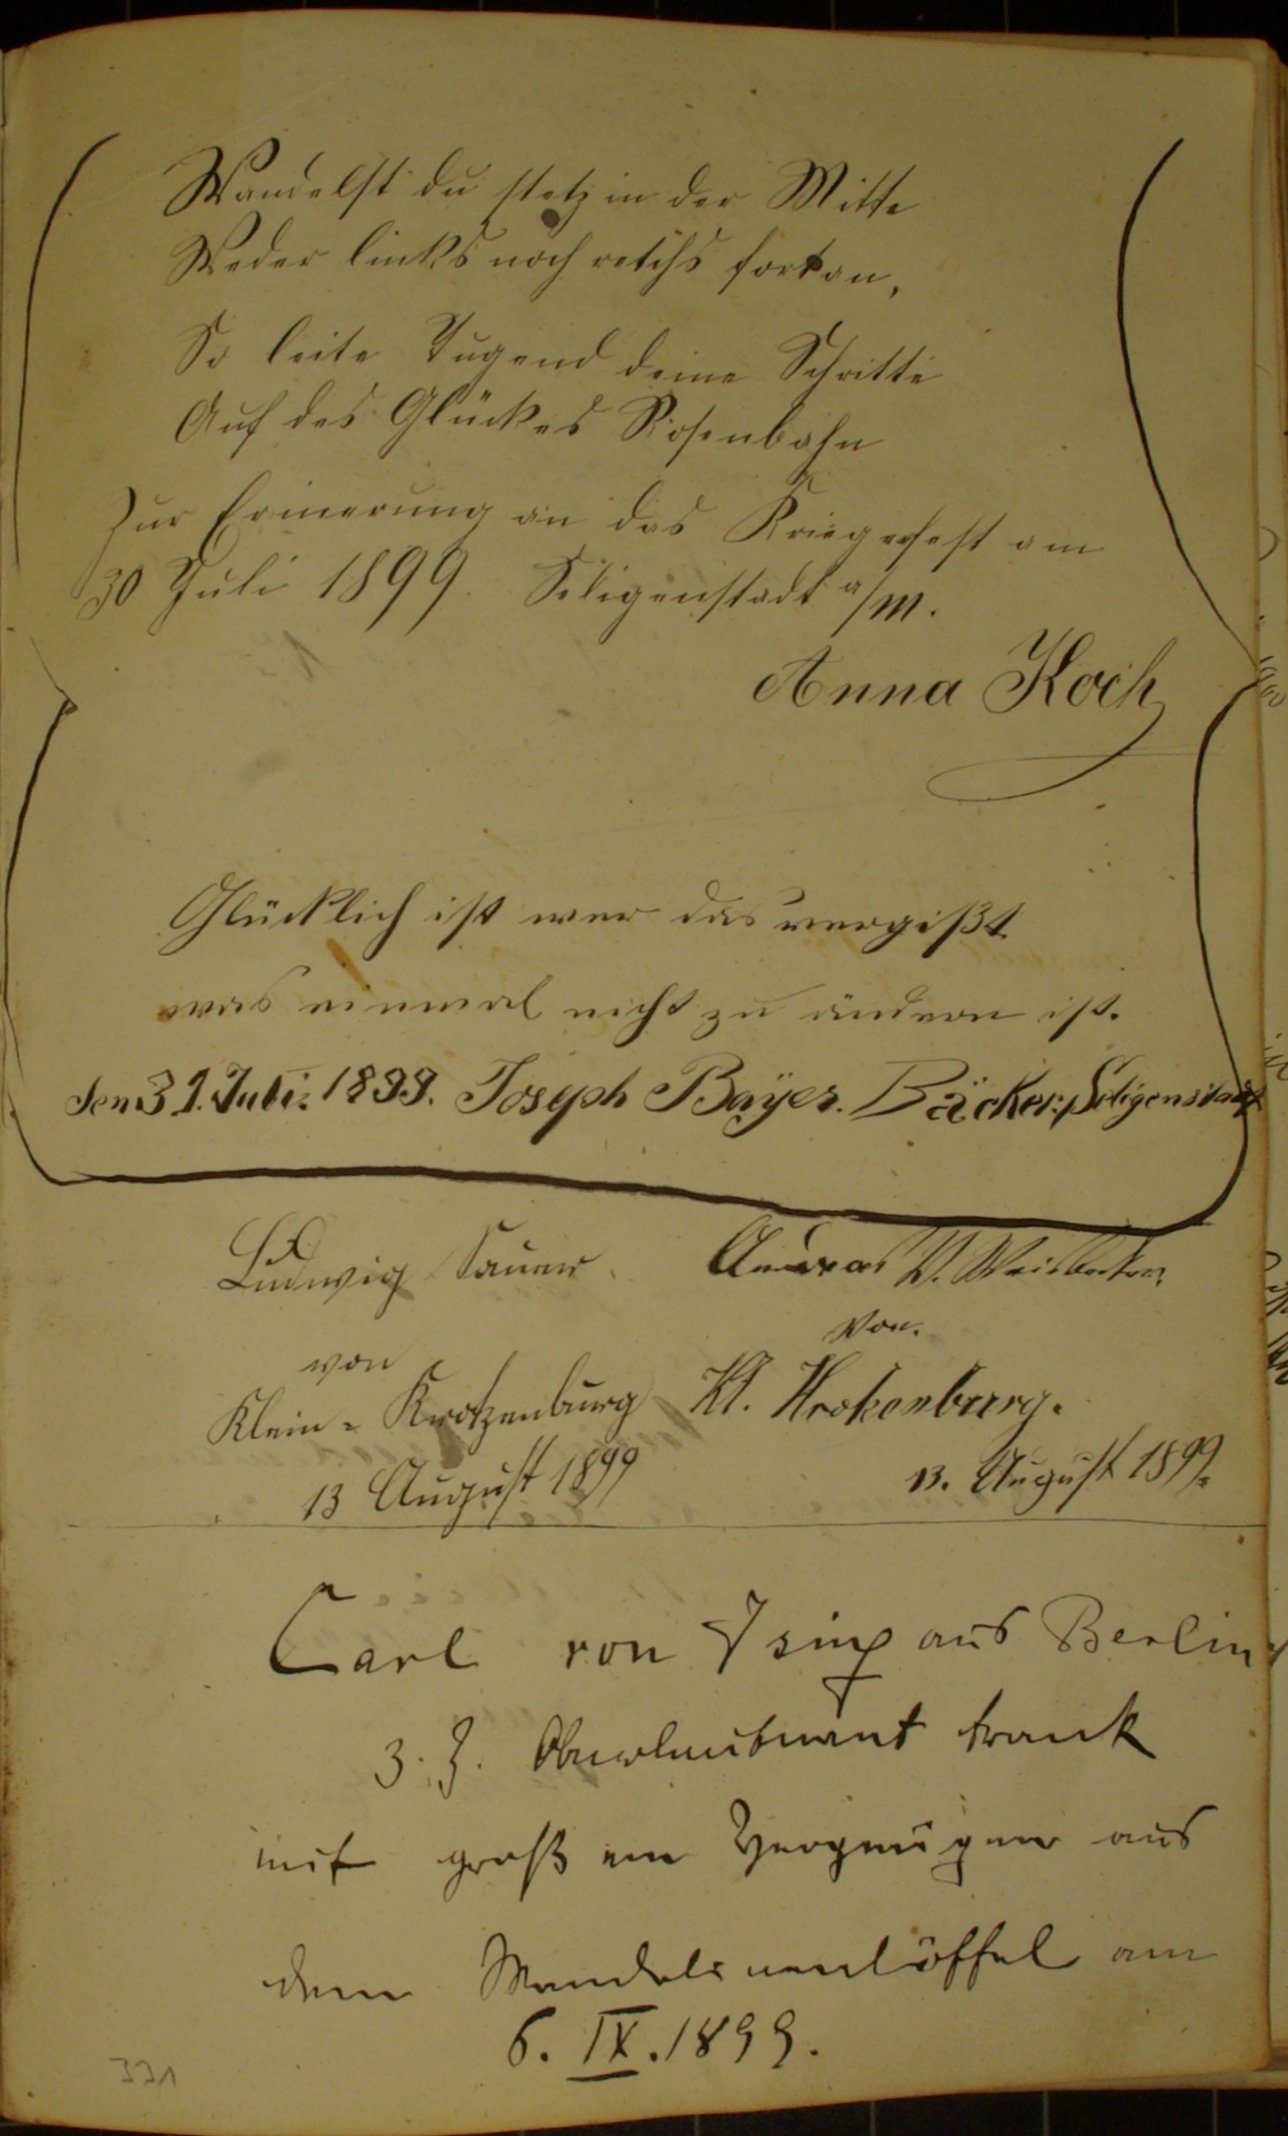 Wandelst du stetz in der Mitte
Weder links noch retchs fortan,
So leite Tugend deine Schritte
Auf des Glückes Rosenbahn
Zur Erinerung an das Kriegerfest am
30 Juli 1899. Seligenstadt a/M.
Anna Koch
Glücklich ist wer das vergißt
was einmal nicht zu ändern ist.
den 31. Juli. 1899. Joseph Bayer. Bäcker. Seligenstadt
Ludwig Sauer
von
Klein-Krotzenburg
13 August 1899
Andreas W.
von.
Kl. Krotzenburg.
13. August 1899.
Carl von aus Berlin
z. Z. Oberleutnant trank
mit großem Vergnügen aus
dem löffel am
6. IX. 1899.
331